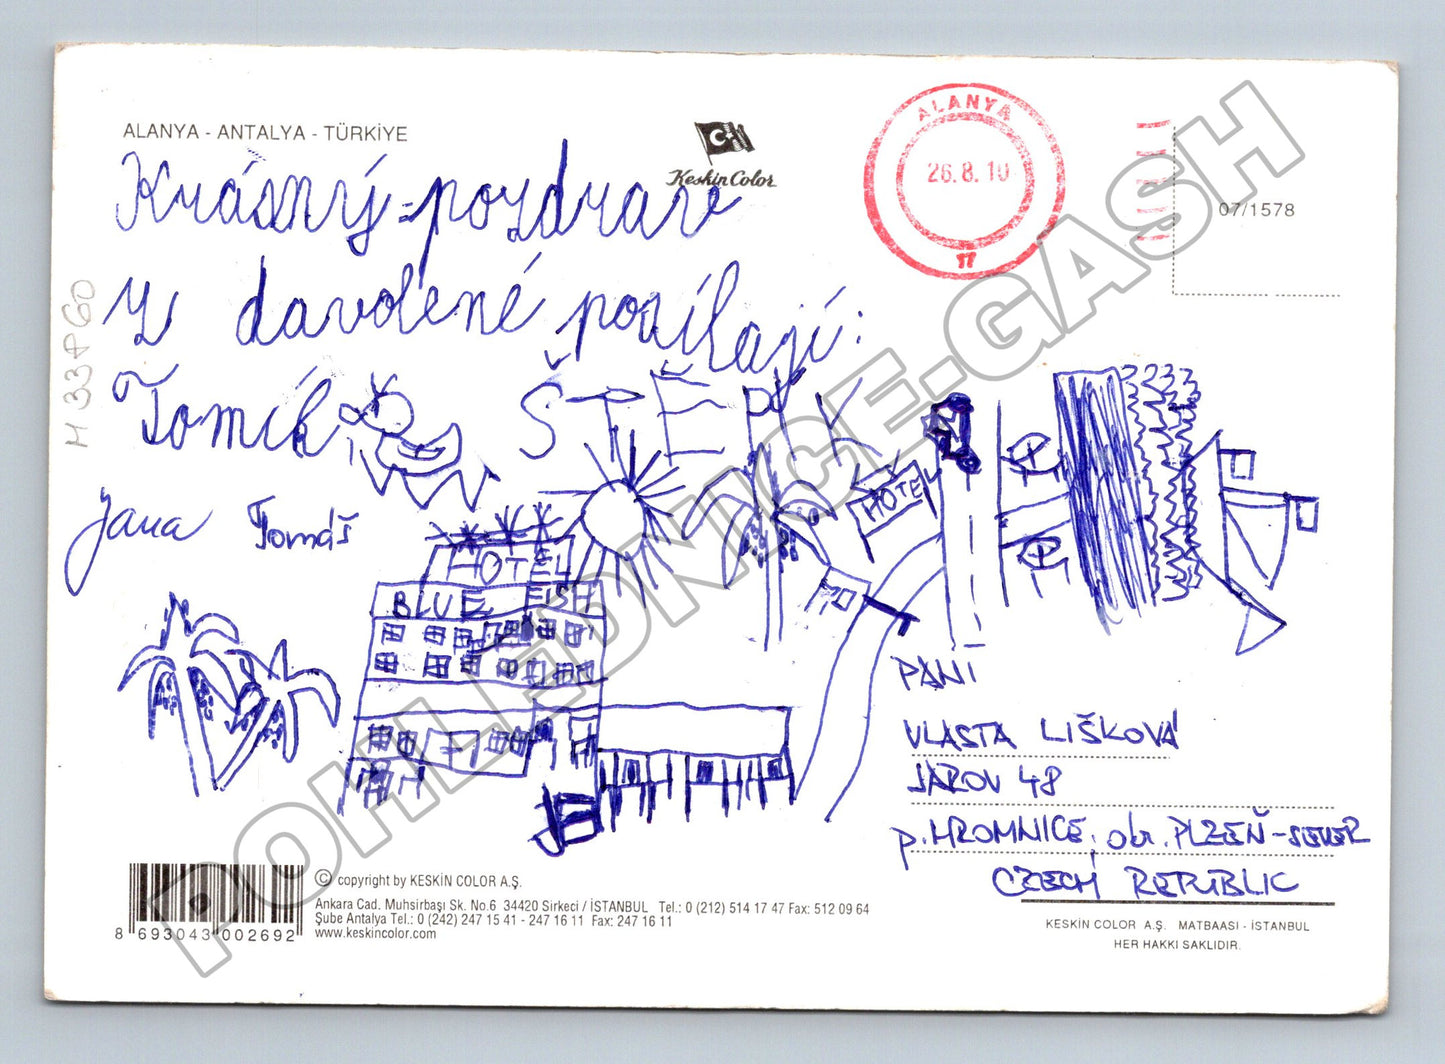 ALANYA - ANTALYA - TÜRKİYE
Keskin Color
ALANYA
26.8.10
17
07/1578
Krásný pozdrav
z dovolené posílají:
Tomík ŠTĚPÍK
Jana Tomáš
HOTEL
BLUE FISH
HOTEL
H33P60
PANÍ
VLASTA LIŠKOVÁ
JAROV 48
p. HROMNICE, okr. PLZEŇ-SEVER
CZECH REPUBLIC
8 693043 002692
© copyright by KESKİN COLOR A.Ş.
Ankara Cad. Muhsirbaşı Sk. No.6 34420 Sirkeci / İSTANBUL Tel.: 0 (212) 514 17 47 Fax: 512 09 64
Şube Antalya Tel.: 0 (242) 247 15 41 - 247 16 11 Fax: 247 16 11
www.keskincolor.com
KESKİN COLOR A.Ş. MATBAASI - İSTANBUL
HER HAKKI SAKLIDIR.
POHLEDNICE.GASH